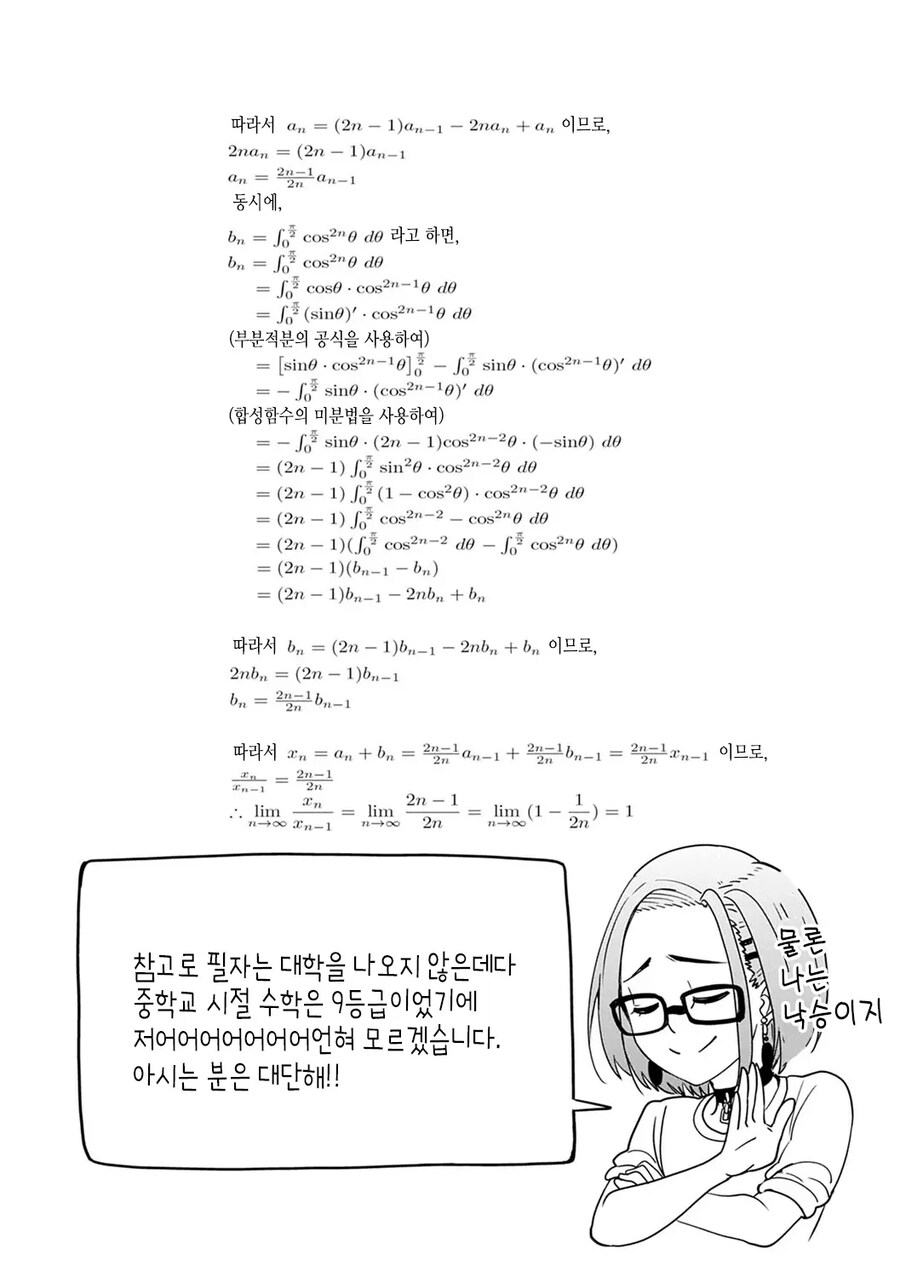 따라서 aₙ = (2n − 1)aₙ₋₁ − 2naₙ + aₙ 이므로,
2naₙ = (2n − 1)aₙ₋₁
aₙ = \frac{2n−1}{2n}aₙ₋₁
동시에,
bₙ = ∫_0^{\frac{π}{2}} cos²ⁿθ dθ 라고 하면,
bₙ = ∫_0^{\frac{π}{2}} cos²ⁿθ dθ
= ∫_0^{\frac{π}{2}} cosθ · cos²ⁿ⁻¹θ dθ
= ∫_0^{\frac{π}{2}} (sinθ)′ · cos²ⁿ⁻¹θ dθ
(부분적분의 공식을 사용하여)
= [sinθ · cos²ⁿ⁻¹θ]_0^{\frac{π}{2}} − ∫_0^{\frac{π}{2}} sinθ · (cos²ⁿ⁻¹θ)′ dθ
= − ∫_0^{\frac{π}{2}} sinθ · (cos²ⁿ⁻¹θ)′ dθ
(합성함수의 미분법을 사용하여)
= − ∫_0^{\frac{π}{2}} sinθ · (2n − 1)cos²ⁿ⁻²θ · (−sinθ) dθ
= (2n − 1) ∫_0^{\frac{π}{2}} sin²θ · cos²ⁿ⁻²θ dθ
= (2n − 1) ∫_0^{\frac{π}{2}} (1 − cos²θ) · cos²ⁿ⁻²θ dθ
= (2n − 1) ∫_0^{\frac{π}{2}} cos²ⁿ⁻² − cos²ⁿθ dθ
= (2n − 1)(∫_0^{\frac{π}{2}} cos²ⁿ⁻² dθ − ∫_0^{\frac{π}{2}} cos²ⁿθ dθ)
= (2n − 1)(bₙ₋₁ − bₙ)
= (2n − 1)bₙ₋₁ − 2nbₙ + bₙ
따라서 bₙ = (2n − 1)bₙ₋₁ − 2nbₙ + bₙ 이므로,
2nbₙ = (2n − 1)bₙ₋₁
bₙ = \frac{2n−1}{2n}bₙ₋₁
따라서 xₙ = aₙ + bₙ = \frac{2n−1}{2n}aₙ₋₁ + \frac{2n−1}{2n}bₙ₋₁ = \frac{2n−1}{2n}xₙ₋₁ 이므로,
\frac{xₙ}{xₙ₋₁} = \frac{2n−1}{2n}
∴ lim_{n→∞} \frac{xₙ}{xₙ₋₁} = lim_{n→∞} \frac{2n − 1}{2n} = lim_{n→∞} (1 − \frac{1}{2n}) = 1
참고로 필자는 대학을 나오지 않은데다
중학교 시절 수학은 9등급이었기에
저어어어어어어어언혀 모르겠습니다.
아시는 분은 대단해!!
물론
나는
낙승이지